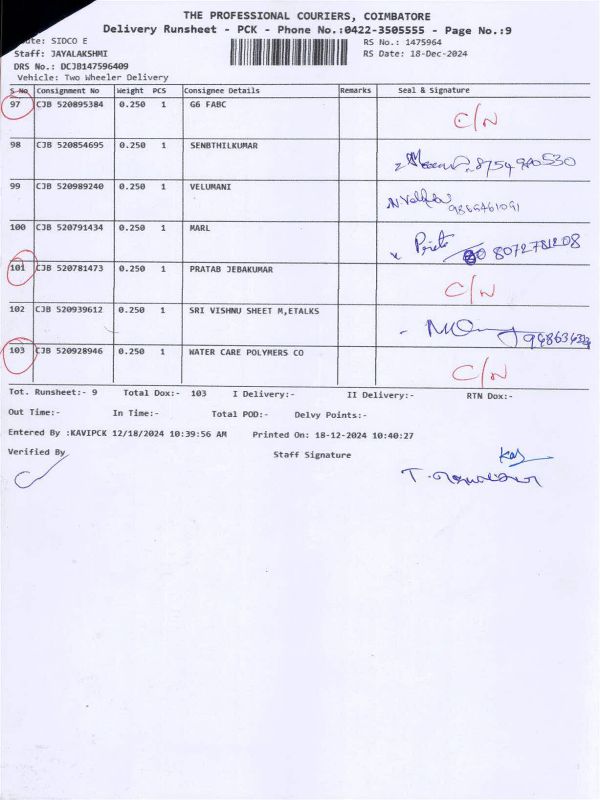 THE PROFESSIONAL COURIERS, COIMBATORE
Delivery Runsheet - PCK - Phone No.:0422-3505555 - Page No.:9
SIDCO E RS No.: 1475964
Staff: JAYALAKSHMI RS Date: 18-Dec-2024
DRS No.: DCJB147596409
Vehicle: Two Wheeler Delivery
S No Consignment No Weight PCS Consignee Details Remarks Seal & Signature
97 CJB 520895384 0.250 1 G6 FABC C/N
98 CJB 520854695 0.250 1 SENBTHILKUMAR
99 CJB 520989240 0.250 1 VELUMANI
100 CJB 520791434 0.250 1 MARL
101 CJB 520781473 0.250 1 PRATAB JEBAKUMAR C/N
102 CJB 520939612 0.250 1 SRI VISHNU SHEET M,ETALKS
103 CJB 520928946 0.250 1 WATER CARE POLYMERS CO C/N
Tot. Runsheet:- 9 Total Dox:- 103 I Delivery:- II Delivery:- RTN Dox:-
Out Time:- In Time:- Total POD:- Delvy Points:-
Entered By :KAVIPCK 12/18/2024 10:39:56 AM Printed On: 18-12-2024 10:40:27
Verified By Staff Signature